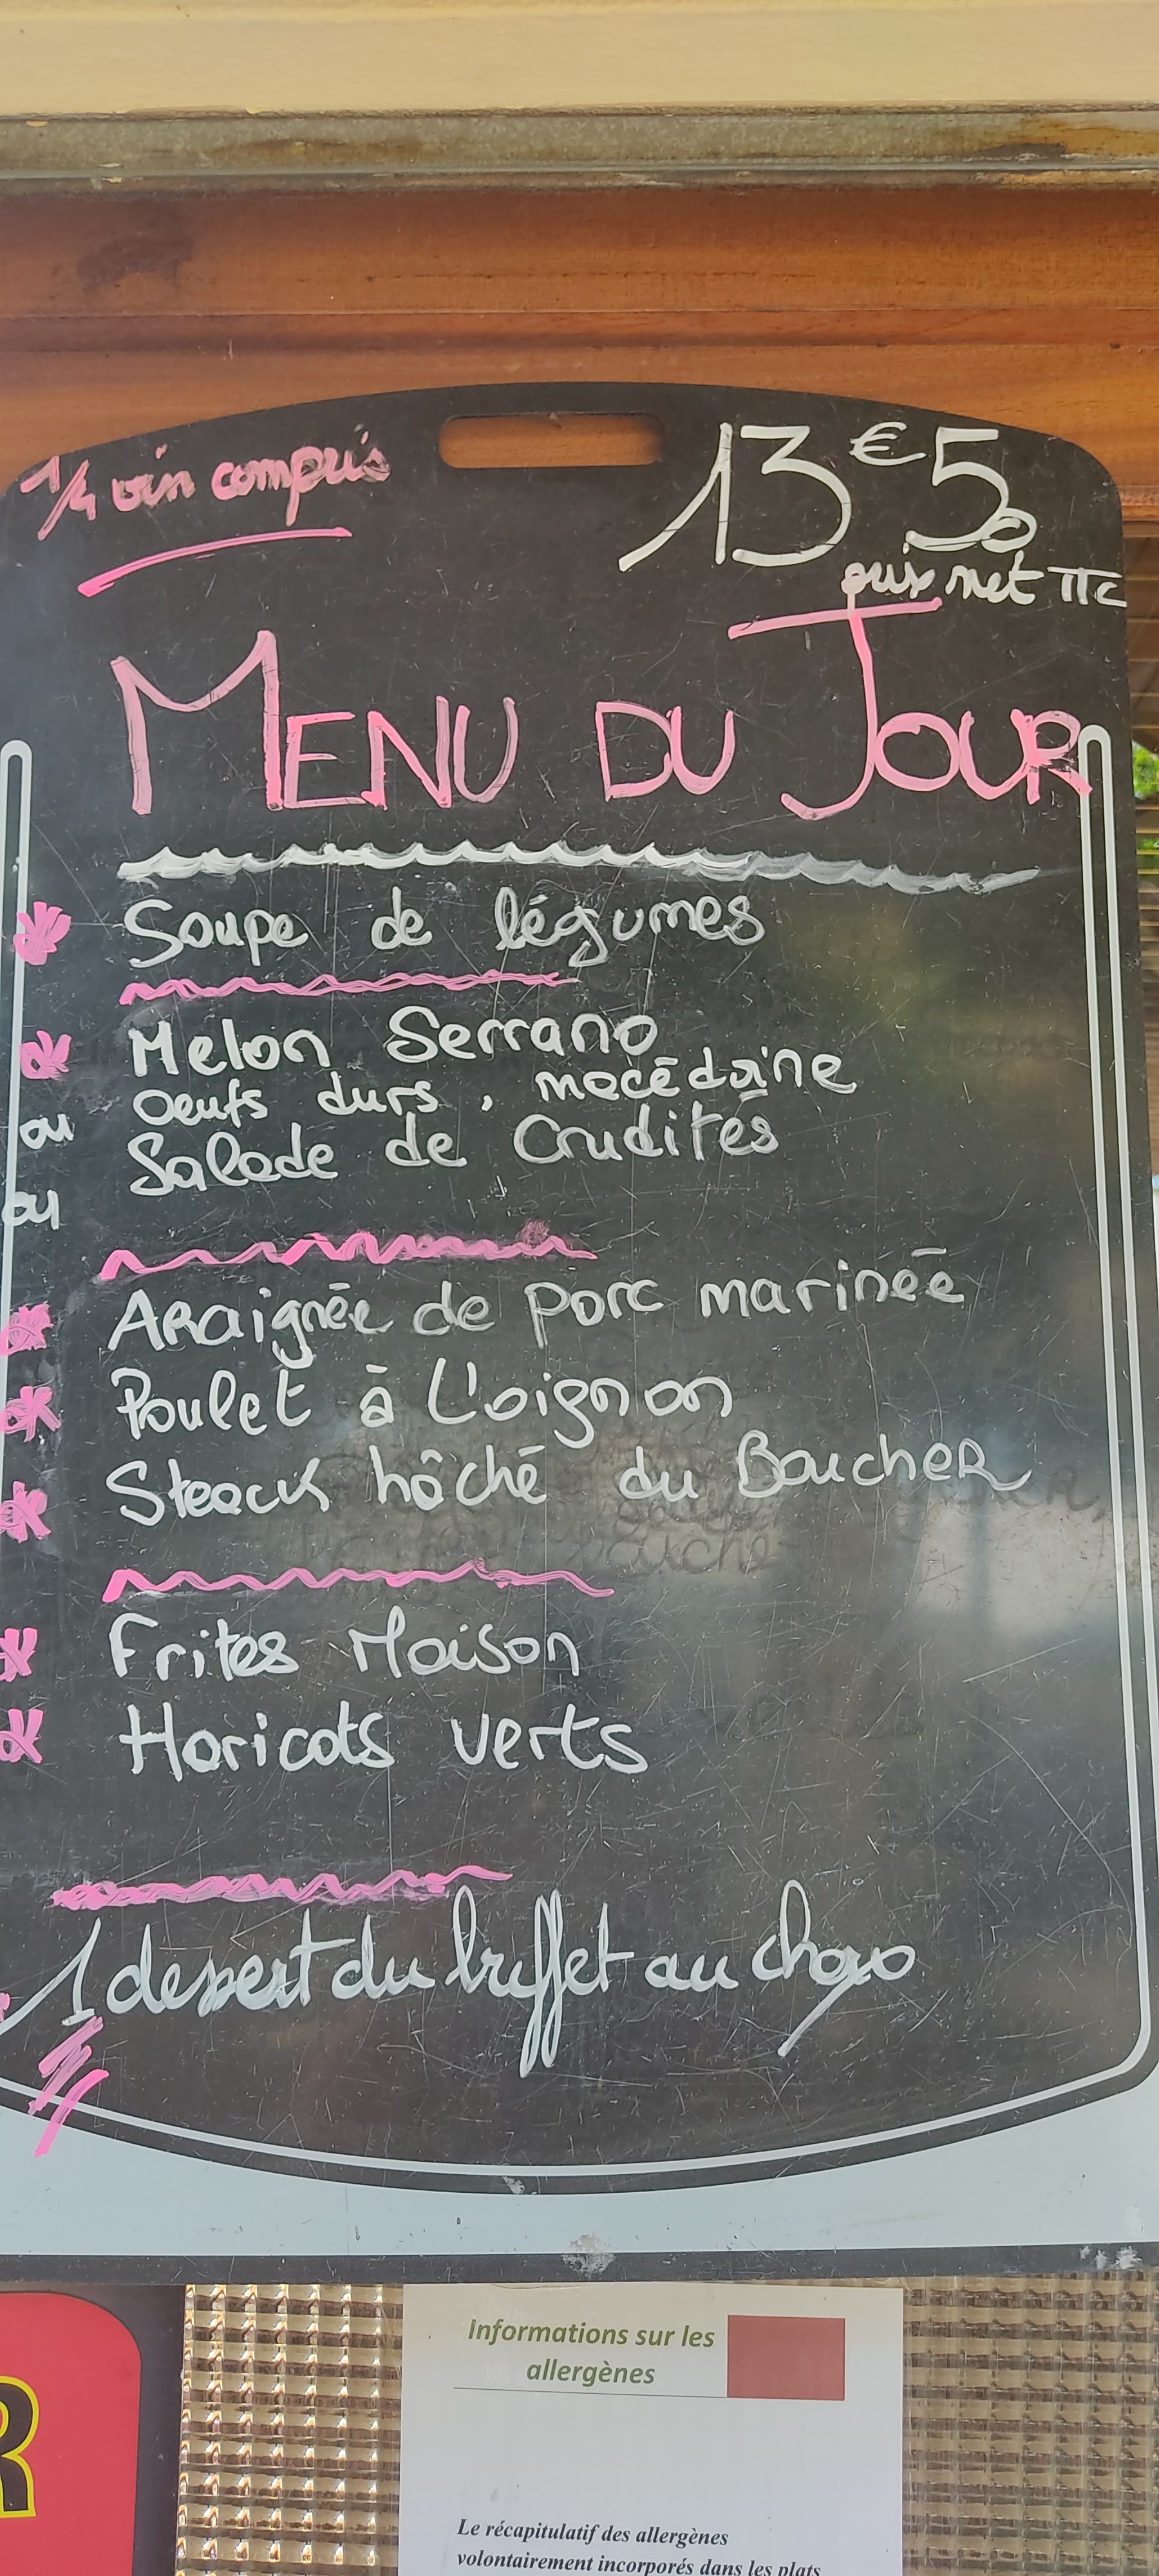 1/4 vin compris
13€50
prix net TTC
MENU DU JOUR
Soupe de légumes
Melon Serrano
ou Oeufs durs, macédoine
ou Salade de Crudités
Araignée de porc marinée
Poulet à L'oignon
Steack hâché du Boucher
Frites Maison
Haricots verts
1 dessert du buffet au choix
R
Informations sur les
allergènes
Le récapitulatif des allergènes
volontairement incorporés dans les plats